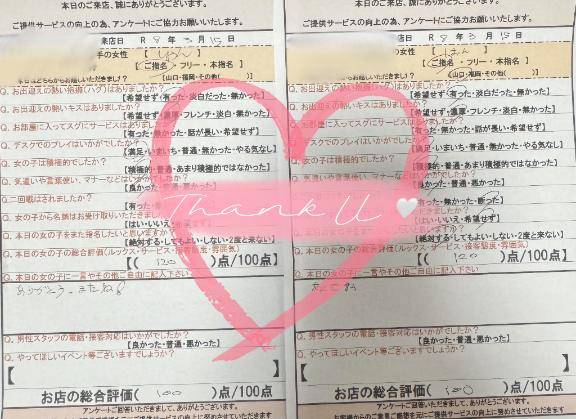 本日のご来店、誠にありがとうございます。
ご提供サービスの向上の為、アンケートにご協力お願いいたします。
来店日 R 8年 3月 15日
手の女性
【ご指名・フリー・本指名】
【山口・福岡・その他( )】
Q. お出迎えの熱い抱擁(ハグ)はありましたか?
【希望せず・有った・淡白だった・無かった】
Q. お出迎えの熱いキスはありましたか?
【希望せず・濃厚・フレンチ・淡白・無かった】
Q. お部屋に入ってスグにサービスはありましたか?
【有った・無かった・話が長い・希望せず】
Q. デスクでのプレイはいかがでしたか?
【満足・いまいち・普通・無かった・やる気なし】
Q. 女の子は積極的でしたか?
【積極的・普通・あまり積極的ではなかった】
Q. 気遣いや言葉使い、マナーなどはいかがでしたか?
【良かった・普通・悪かった】
Q. 二回戦はされましたか?
Q. 女の子から名刺はお受け取りいただきましたか?
【はい・いいえ・希望せず】
Q. 本日の女の子をまた指名したいと思いますか?
【絶対する・してもよい・しない・2度と来ない】
Q. 本日の女の子の総合評価(ルックス・サービス・接客態度・雰囲気)
【( 120 )点/100点】
Q. 本日の女の子に一言やその他ご自由に記入下さい
ありがとう。またね
Q. 男性スタッフの電話・接客対応はいかがでしたか?
【良かった・普通・悪かった】
Q. やってほしいイベント等ございますでしょうか?
【
お店の総合評価( 100 )点/100点
アンケートご回答いただきまして、ありがとうございます。
本日のご来店、誠にありがとうございます。
ご提供サービスの向上の為、アンケートにご協力お願いいたします。
来店日 R 8年 3月 15日
手の女性
【ご指名・フリー・本指名】
【山口・福岡・その他( )】
Q. お出迎えの熱い抱擁(ハグ)はありましたか?
【希望せず・有った・淡白だった・無かった】
Q. お出迎えの熱いキスはありましたか?
【希望せず・濃厚・フレンチ・淡白・無かった】
Q. お部屋に入ってスグにサービスはありましたか?
【有った・無かった・話が長い・希望せず】
Q. デスクでのプレイはいかがでしたか?
【満足・いまいち・普通・無かった・やる気なし】
Q. 女の子は積極的でしたか?
【積極的・普通・あまり積極的ではなかった】
Q. 気遣いや言葉使い、マナーなどはいかがでしたか?
【良かった・普通・悪かった】
【有った・無かった・断った】
【はい・いいえ・希望せず】
【絶対する・してもよい・しない・2度と来ない】
Q. 本日の女の子の総合評価(ルックス・サービス・接客態度・雰囲気)
【( 120 )点/100点】
Q. 本日の女の子に一言やその他ご自由に記入下さい
Q. 男性スタッフの電話・接客対応はいかがでしたか?
【良かった・普通・悪かった】
Q. やってほしいイベント等ございますでしょうか?
【
お店の総合評価( 100 )点/100点
アンケートご回答いただきまして、ありがとうございます。
Thank U